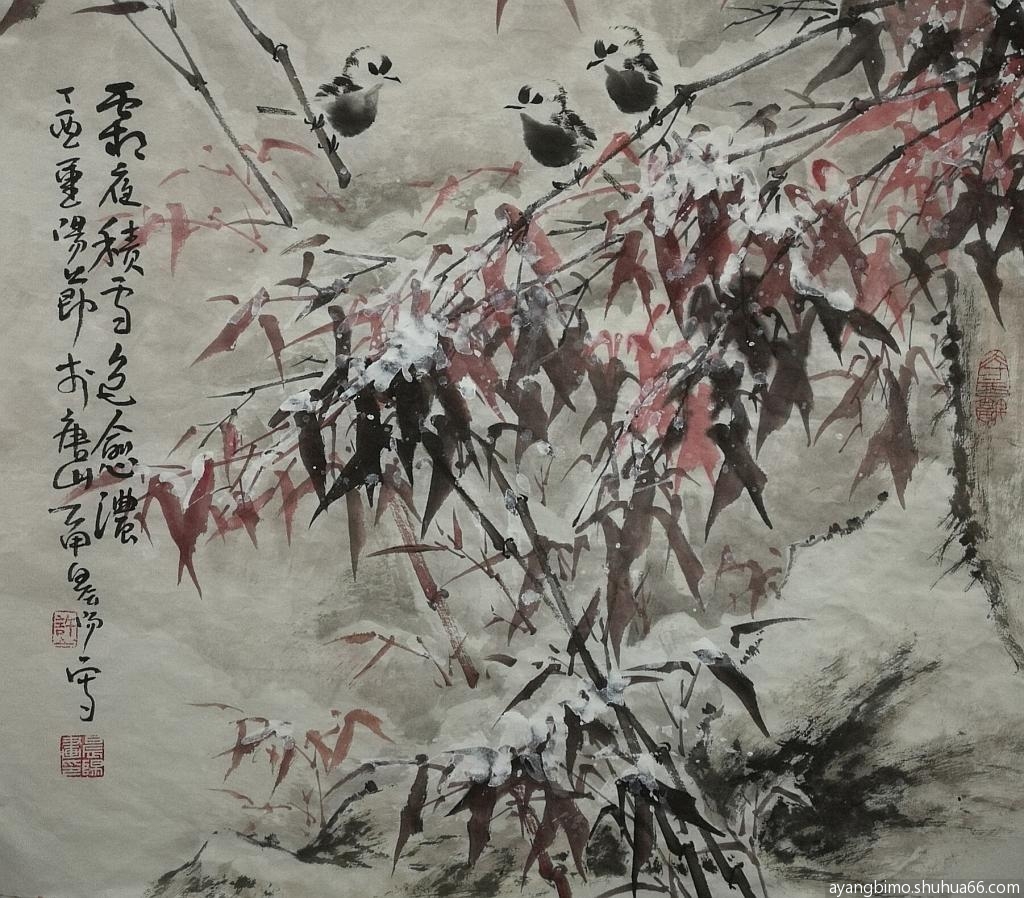 霜夜積雪色愈濃
丁酉重陽節於唐山 晨陽寫
許
晨陽書畫
ayangbimo.shuhua66.com